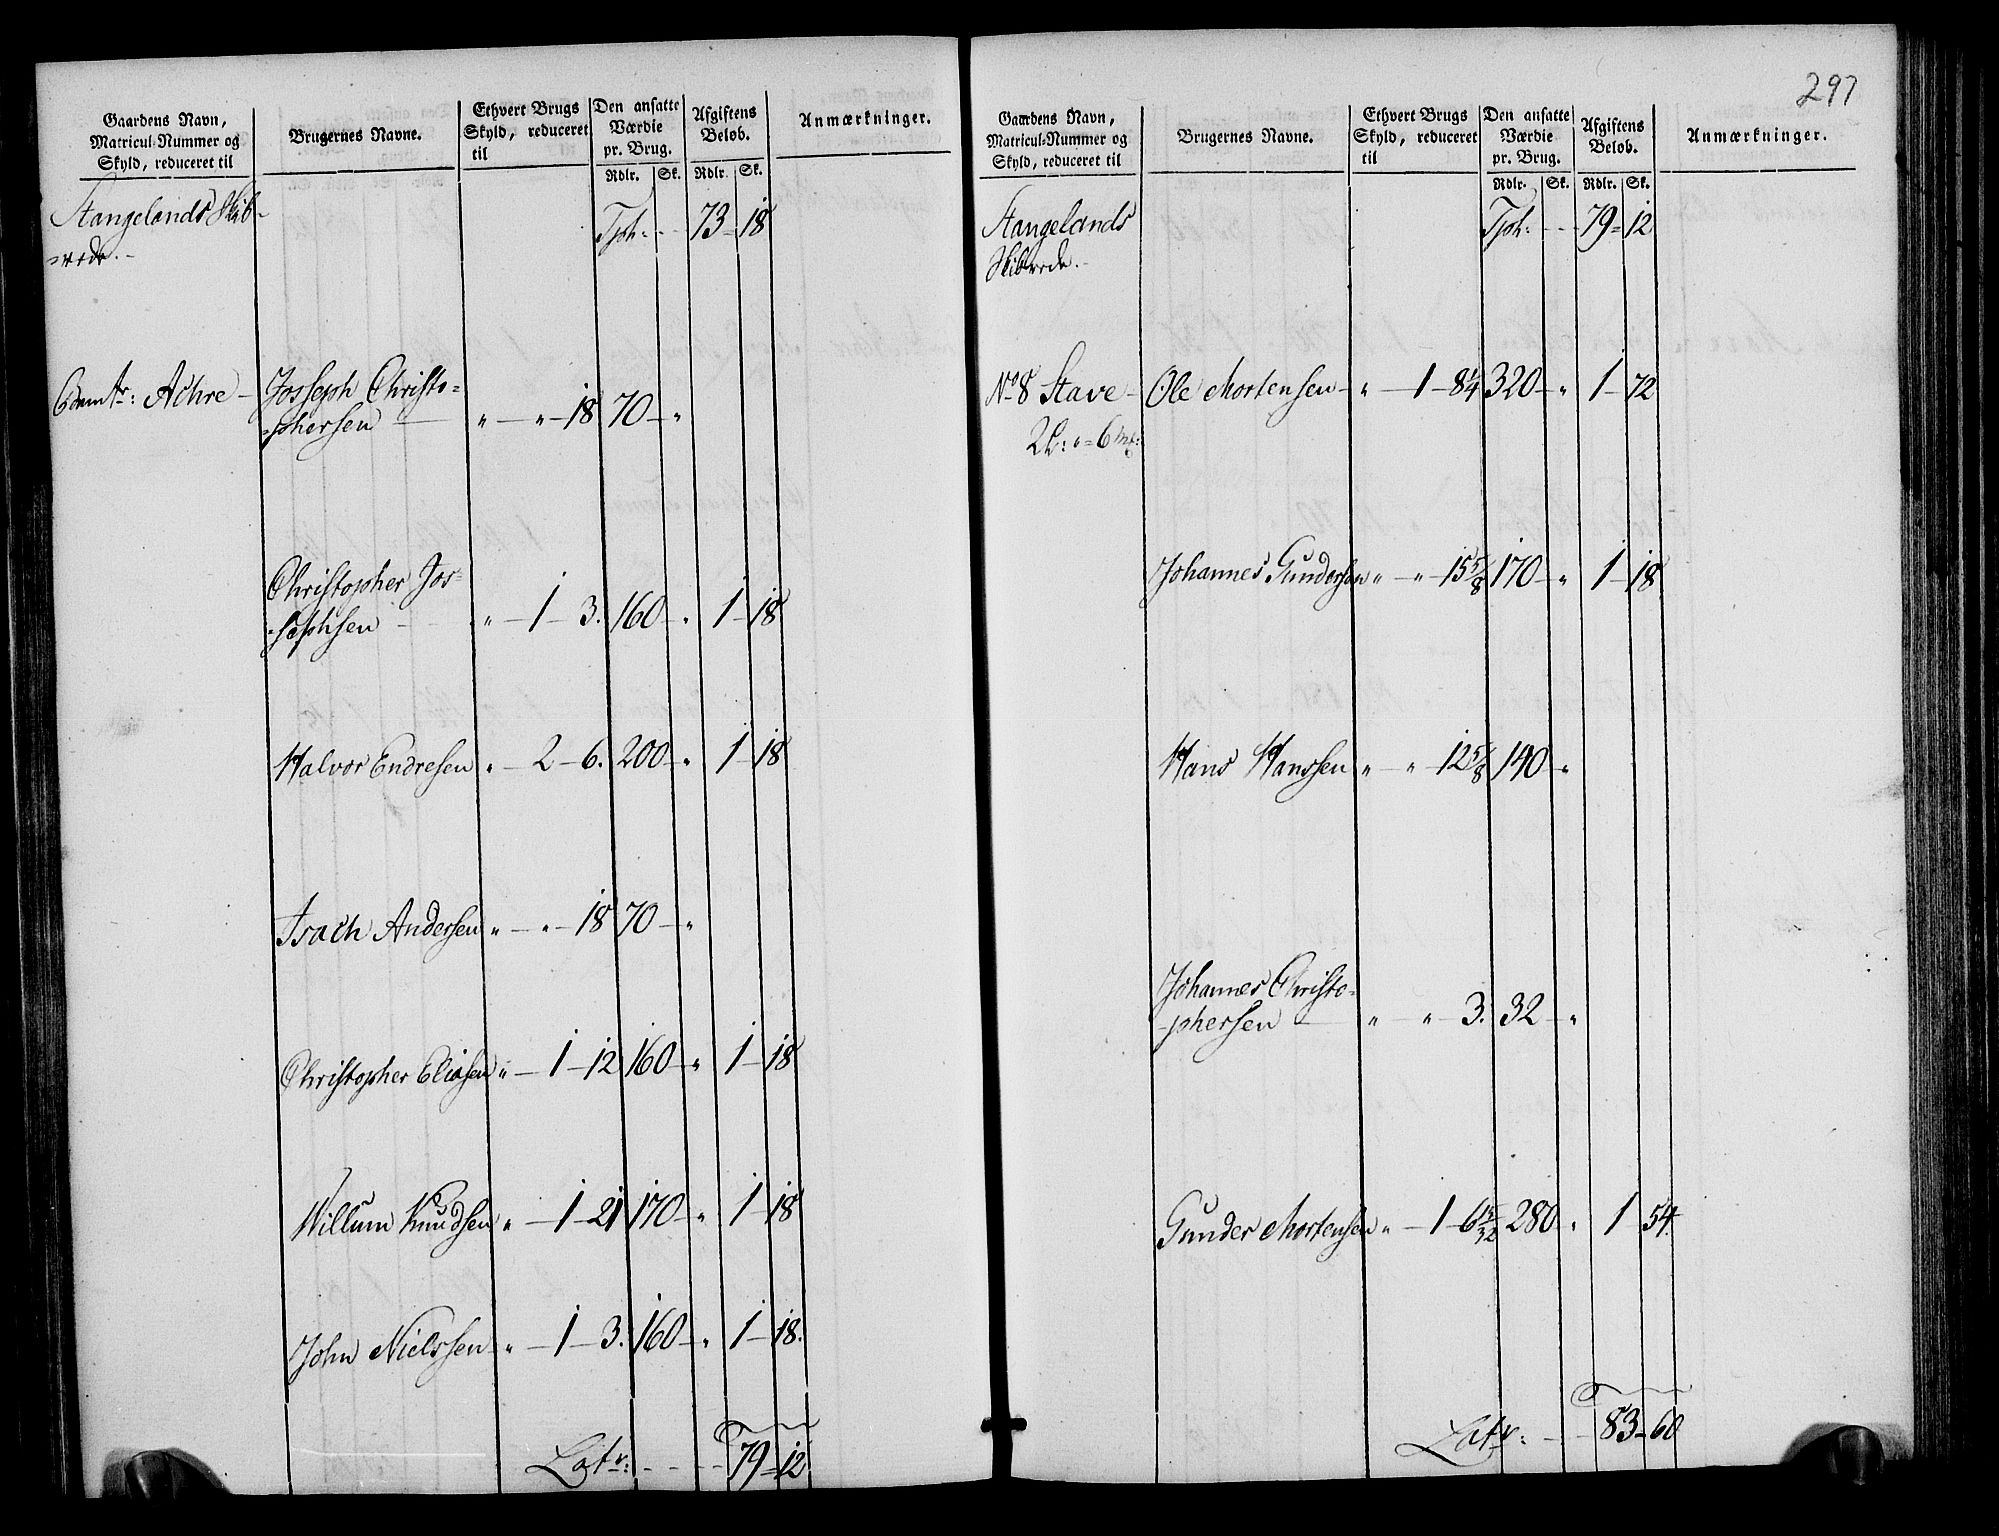 Gaardens Navn, Matricul-Nummer og Skyld, reduceret til | Brugernes Navne. | Ethvert Brugs Skyld, reduceret til | Den ansatte Værdie pr. Brug. Rdlr. Sk. | Afgiftens Beløb. Rdlr. Sk. | Anmærkninger.
Stangelands Skib-
rede.-
Tph: - - 73 - 18
Achre - Josseph Christo=
=phersen - " - " - 18 70 - "
Christopher Jos=
=sephsen - - " - 1 - 3. 160 - " 1 - 18
Halvor Endresen " - 2 - 6. 200 - " 1 - 18
Isach Andersen " - " - 18 70 - "
Christopher Eliasen " - 1 - 12 160 - " 1 - 18
Willum Knudsen " - 1 - 21 170 - " 1 - 18
John Nielssen - " - 1 - 3. 160 - " 1 - 18.
Latr: - - - - 79 = 12
297
Gaardens Navn, Matricul-Nummer og Skyld, reduceret til | Brugernes Navne. | Ethvert Brugs Skyld, reduceret til | Den ansatte Værdie pr. Brug. Rdlr. Sk. | Afgiftens Beløb. Rdlr. Sk. | Anmærkninger.
Stangelands
Skibrede.-
Tph: - - - 79 = 12
No 8 Stave - Ole Mortensen - " - 1 - 8¼ 320 - " 1 - 72
Johannes Gundersen " - " - 15⅝ 170 - " 1 - 18
Hans Hanssen " - " - 12⅝ 140 - "
Johannes Christo=
=phersen - " " - 3. 32 - "
Gunder Mortensen " - 1 - 6 280 - " 1 - 54.
Latr: - - - 83 - 60